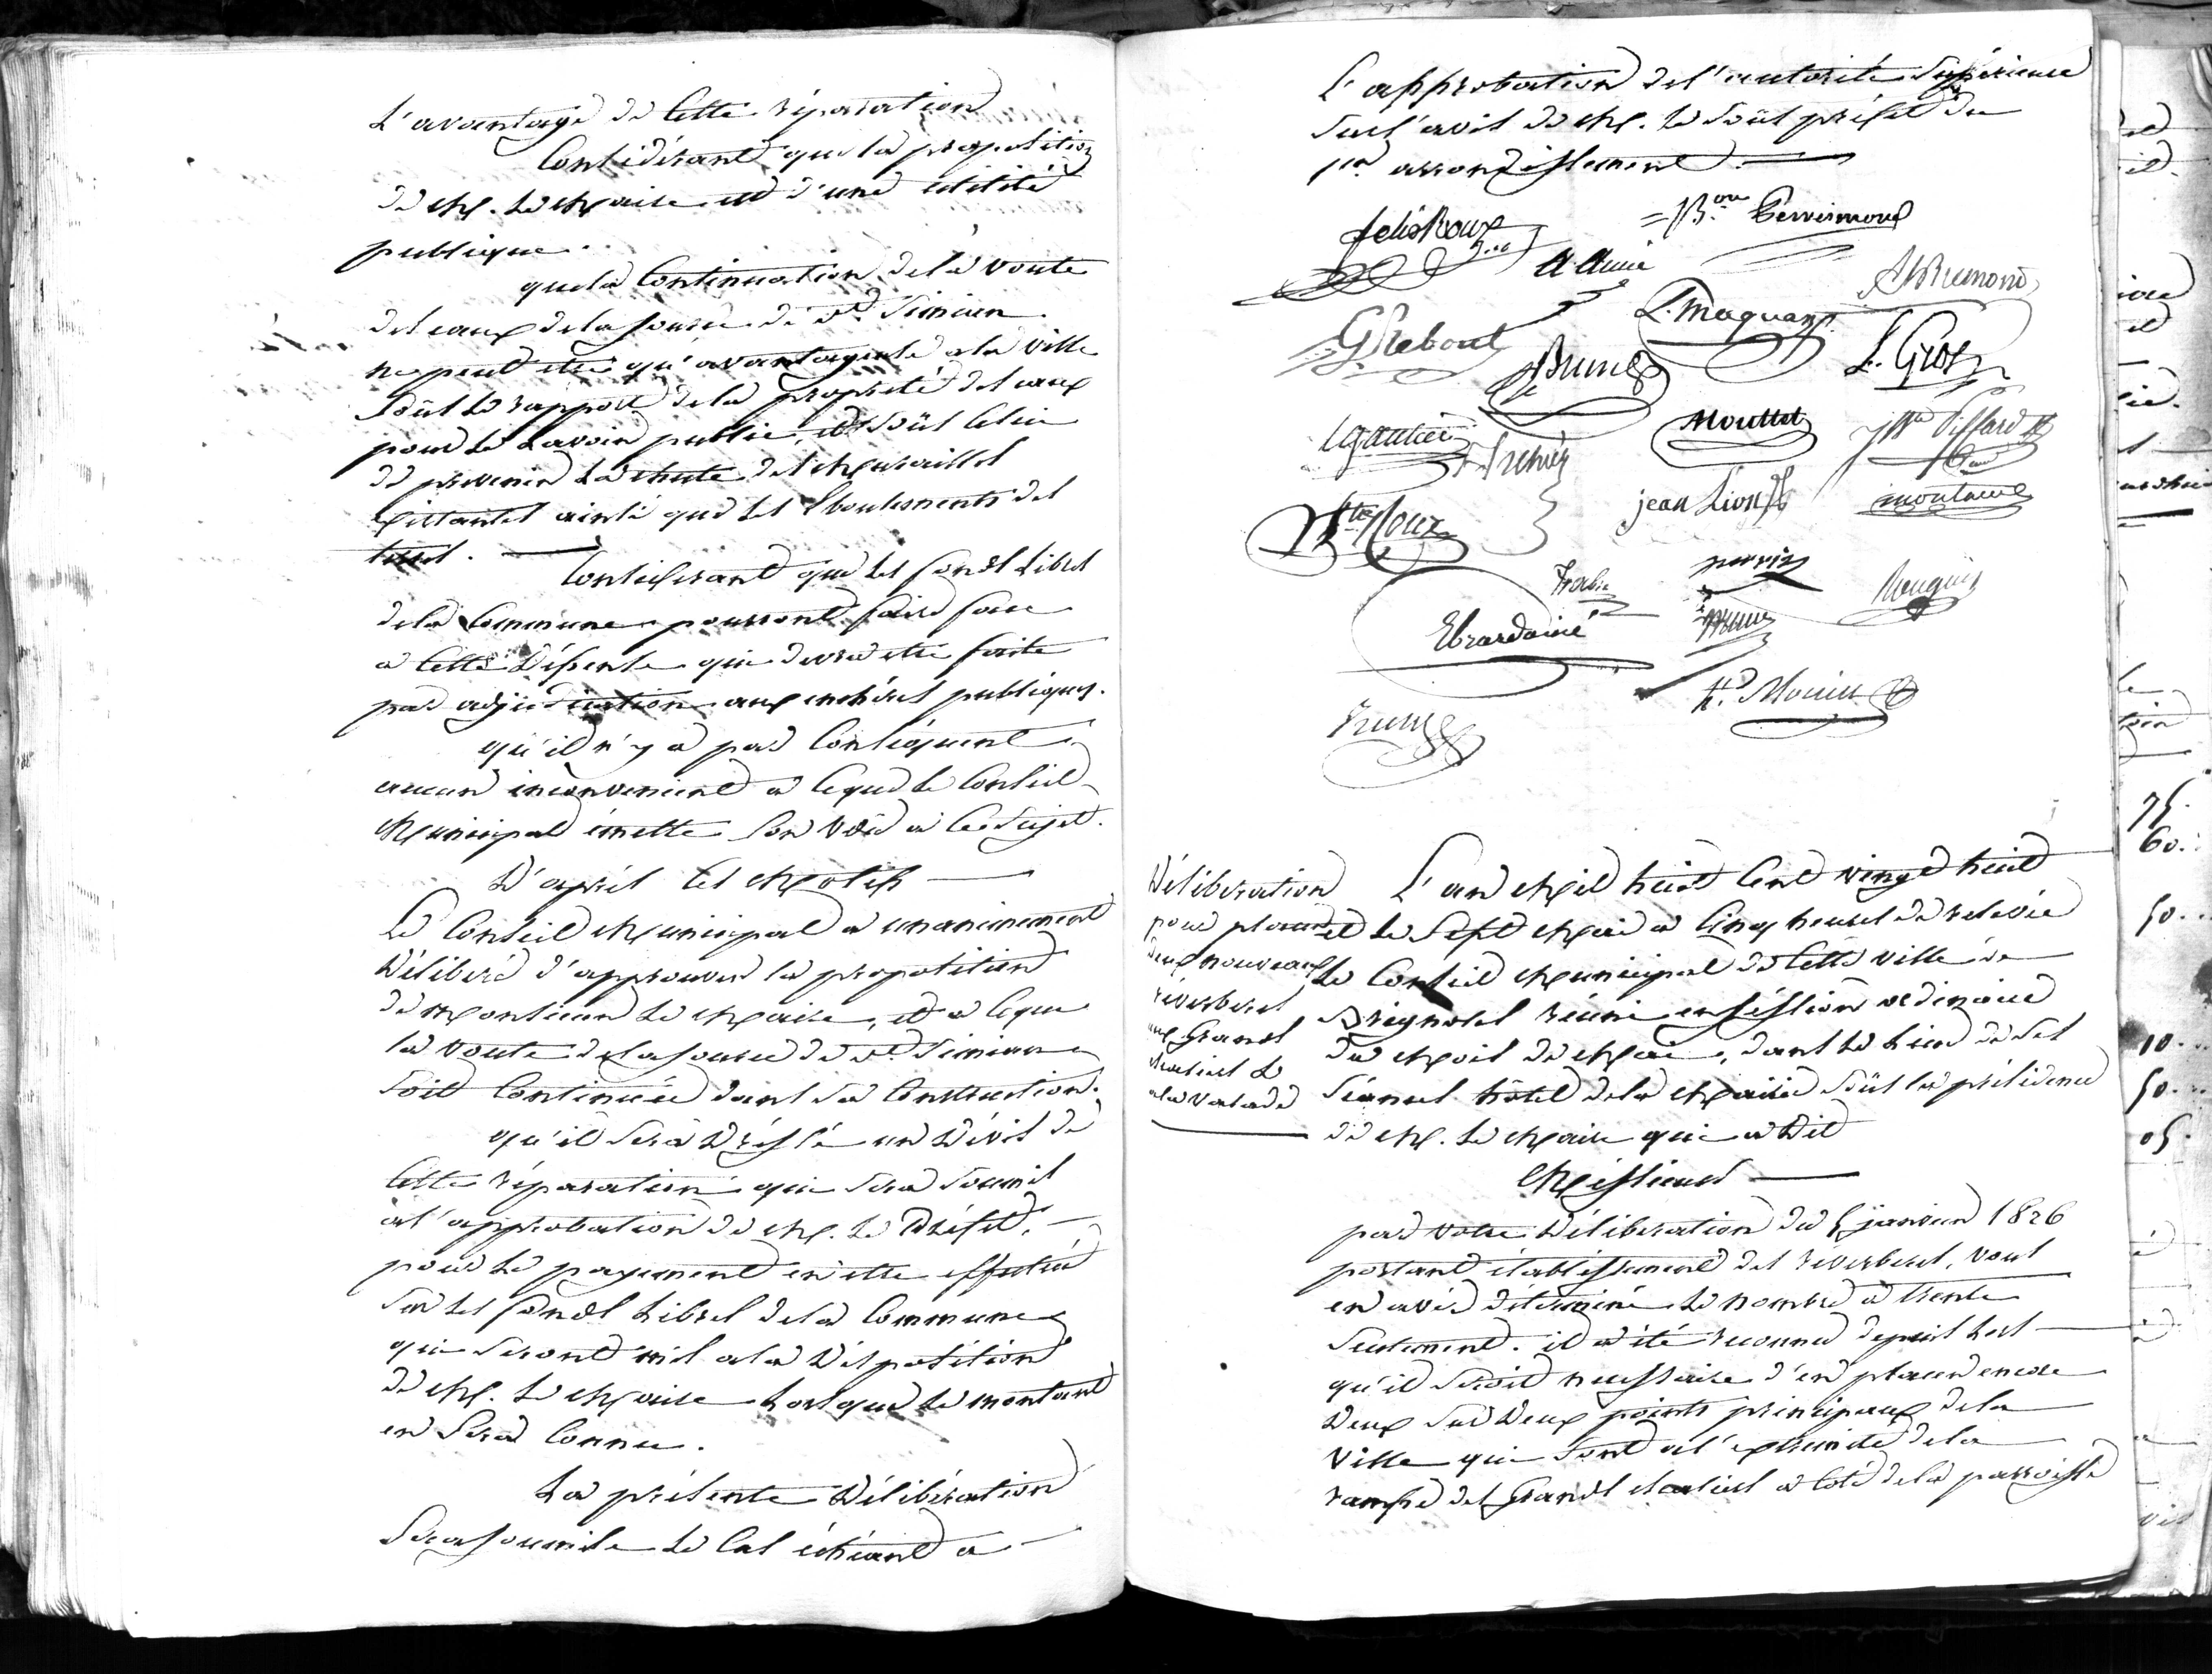 L'avantage de cette réparation
Considérant que la proposition
de M. le Maire est d'une utilité
publique.
que la continuation de la voute
des eaux de la source de St. Simian
ne peut etre qu'avantageuse a la ville
sous le rapport de la propreté des eaux
pour le Lavoir public, et sous celui
de prevenir la chute des Murailles
Existantes ainsi que les Eboulements des
terres.
Considerant que les fonds libres
de la Commune pourront faire face
a cette Dépense qui devra etre faite
par adjudication aux enchéres publiques.
qu'il n'y a par conséquent
aucun inconvenient a ceque le Conseil
Municipal émette son vœu a ce sujet.
D'après ces Motifs
Le Conseil Municipal a unanimement
Déliberé d'approuver la proposition
de Monsieur le Maire, et a ceque
la voute de la source de St. Simian
soit Continuée dans sa Construction.
qu'il sera Dréssé un Dévis de
cette réparation qui sera soumis
a l'approbation de M. le Préfet,
pour le payement en etre effectué
sur les fonds libres de la Commune
qui seront mis a la Disposition
de M. le Maire lorsque le montant
en sera Connu.
La présente Délibération
sera soumise le Cas échéant a
L'approbation de l'autorité Supérieure
sur l'avis de M. le sous préfet du
1er arrondissement.
felix Roux
Bon Gerinmond
A. Aurié
G Rebout
L. Maquan
A Bremond
Brunel
L. Gros
Lgautier
Mouttet
Piffard
Bte Roux
jean Lion
montaud
Ebrardainé
Mouguis
hd. Monier
Brun
Déliberation
pour placer
deux nouveaux
réverberes
aux Grands
Escaliers &
a la Valade
L'an Mil huit Cent vingt huit
et le Sept Mai a Cinq heures de relevée
Le Conseil Municipal de Cette ville de
Brignoles réuni en séssion ordinaire
du Mois de Mai, dans le lieu de ses
Séances hôtel de la Mairie sous la présidence
de M. le Maire qui a Dit
Messieurs
par votre Déliberation du 5 janvier 1826
portant établissement des réverberes, vous
en aviés déterminé le nombre a trente
seulement. il a été reconnu depuis lors
qu'il seroit necessaire d'en placer encore
Deux sur Deux points principaux de la
Ville qui sont a l'extremité de la
rampe des Grands escaliers a coté de la parroisse